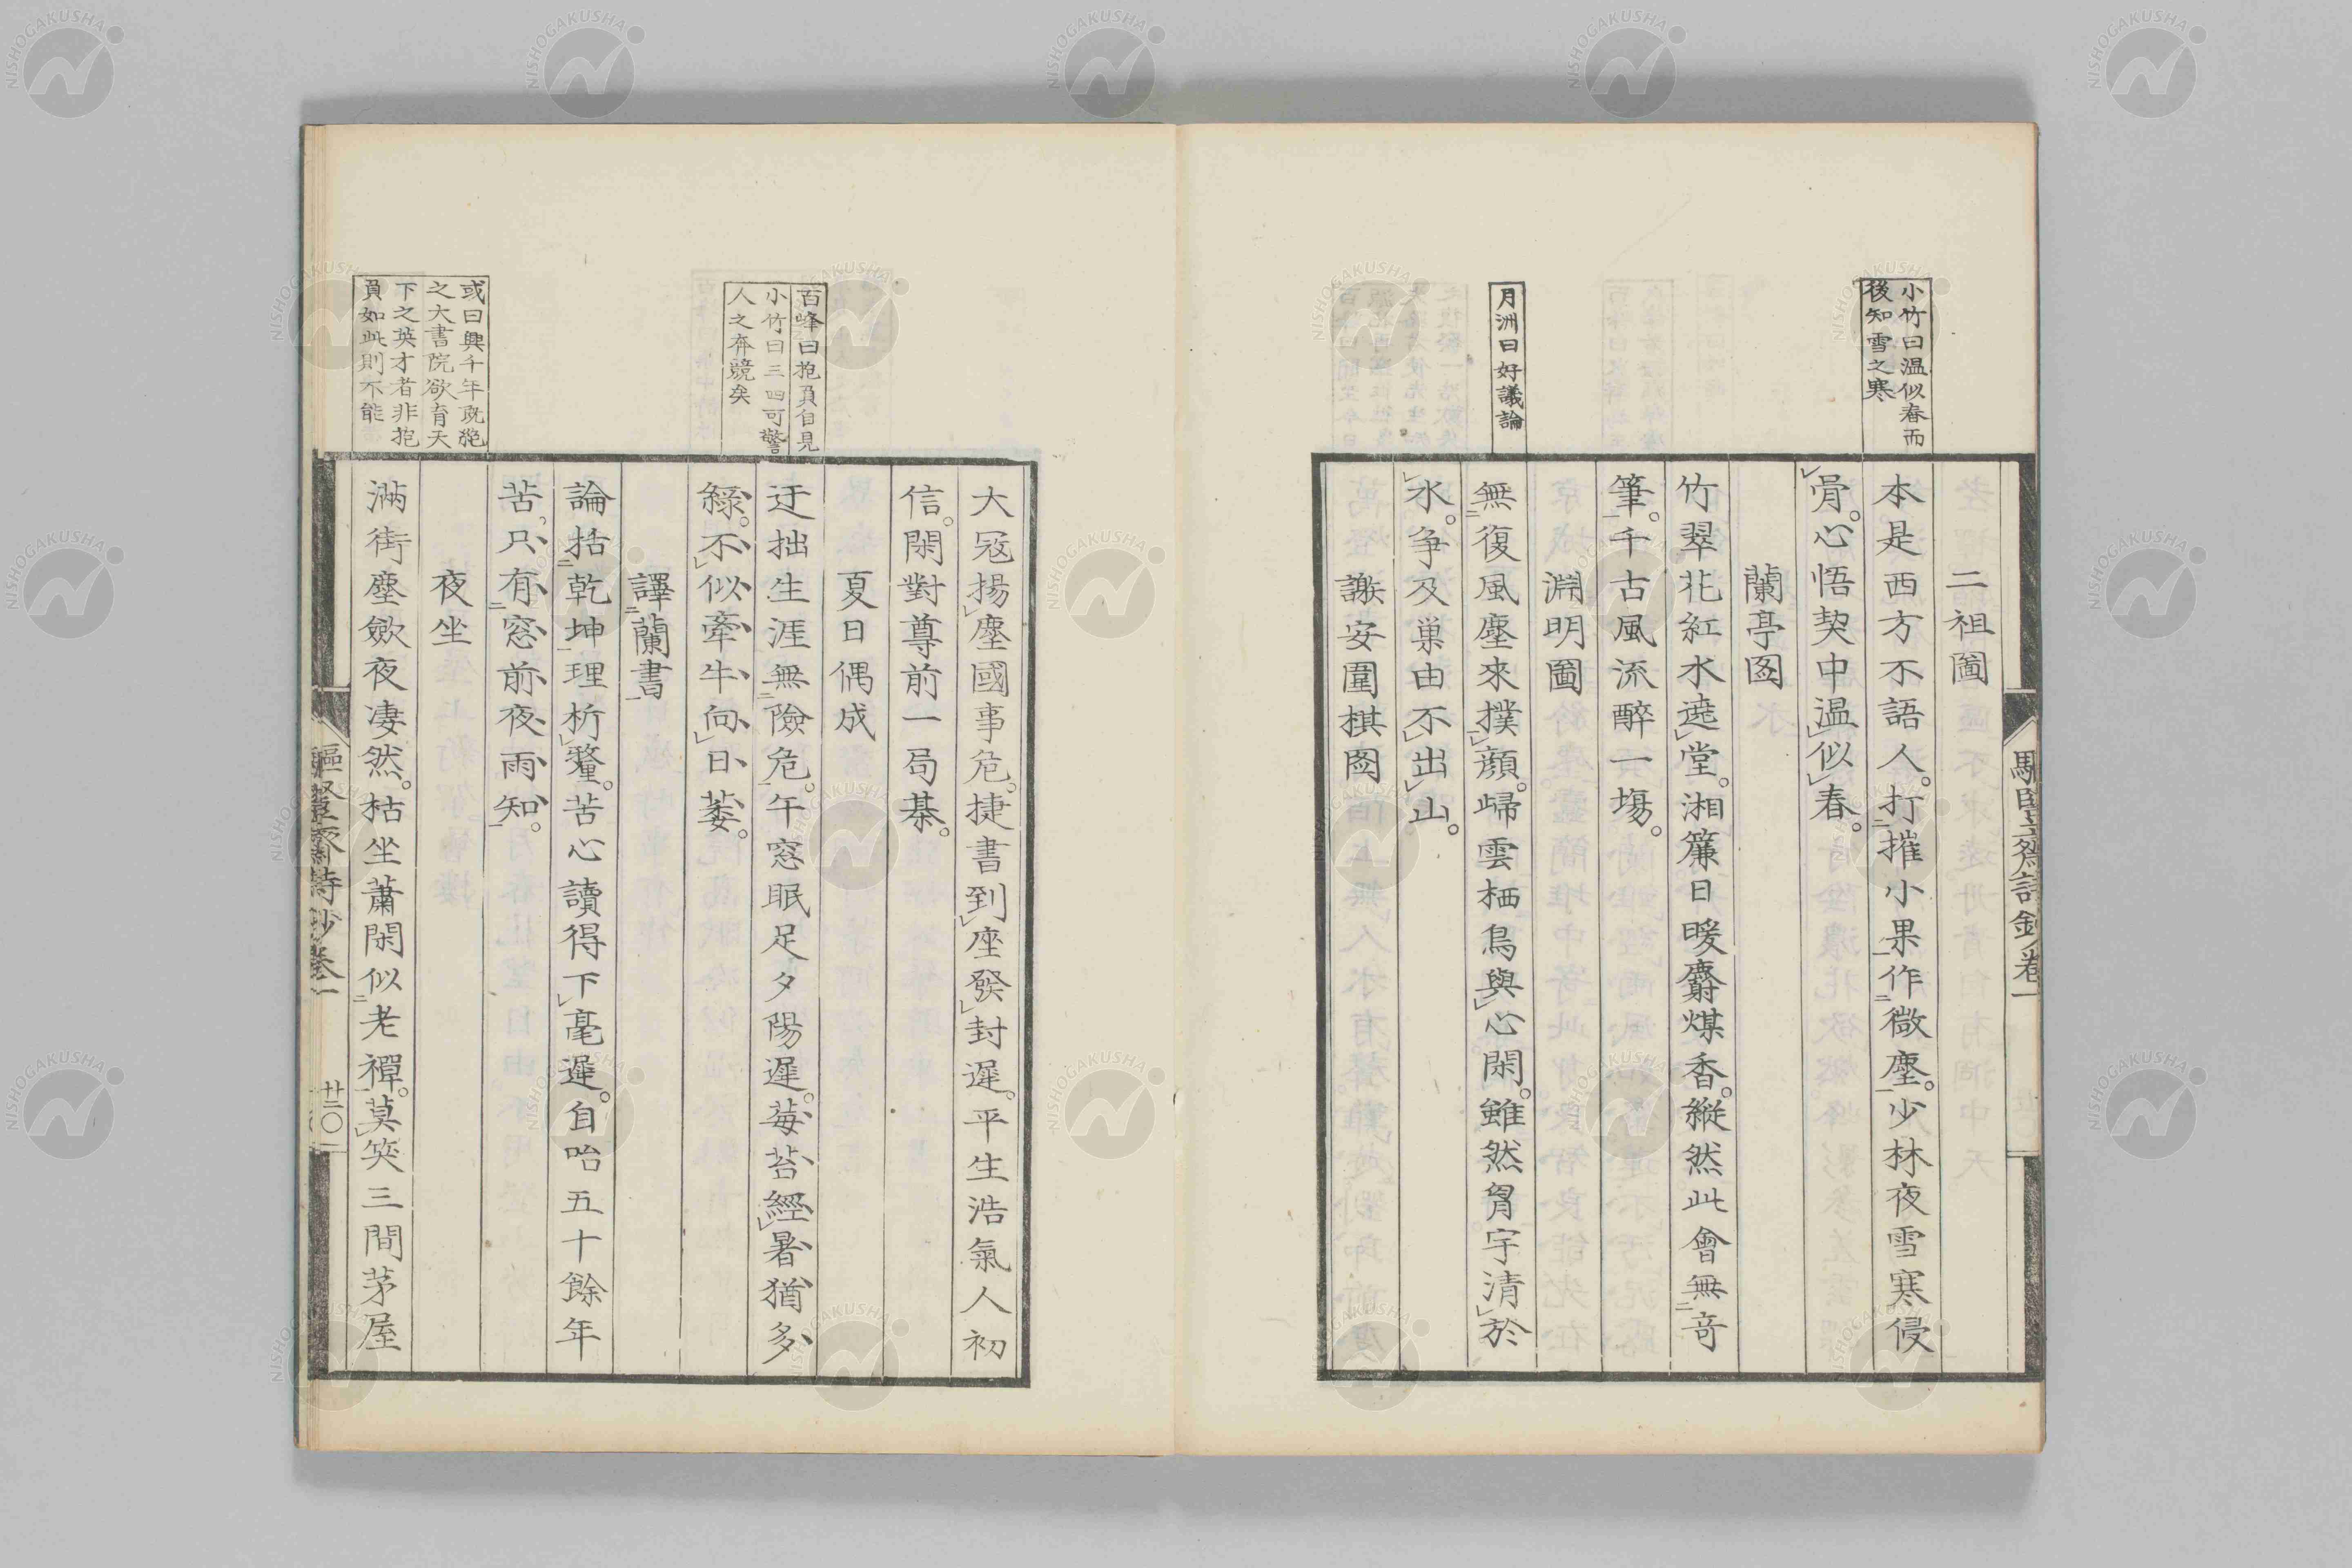 小竹曰温似春而
後知雪之寒
二祖圖
本是西方不語人。打摧小果作微塵。少林夜雪寒侵
骨。心悟契中温似春。
蘭亭圖
竹翠花紅水遶堂。湘簾日暖麝煤香。縦然此會無奇
筆。千古風流醉一場。
月洲曰好議論
淵明圖
無復風塵來撲顔。歸雲栖鳥與心閑。雖然胷宇清於
水。争及巢由不出山。
謝安圍棋圖
大冦揚塵國事危。捷書到座發封遲。平生浩氣人初
信。閑對尊前一局棊。
百峰曰抱負自見
小竹曰三四可警
人之奔競矣
夏日偶成
迂拙生涯無險危。午窓眠足夕陽遲。莓苔經暑猶多
綠。不似牽牛向日萎。
譯蘭書
論括乾坤理析釐。苦心讀得下毫遲。自咍五十餘年
苦。只有窓前夜雨知。
或曰興千年既絶
之大書院欲育天
下之英才者非抱
負如此則不能
夜坐
滿街塵歛夜凄然。枯坐蕭閑似老禪。莫笑三間茅屋
驅豎齋詩鈔卷一
廿二〇一